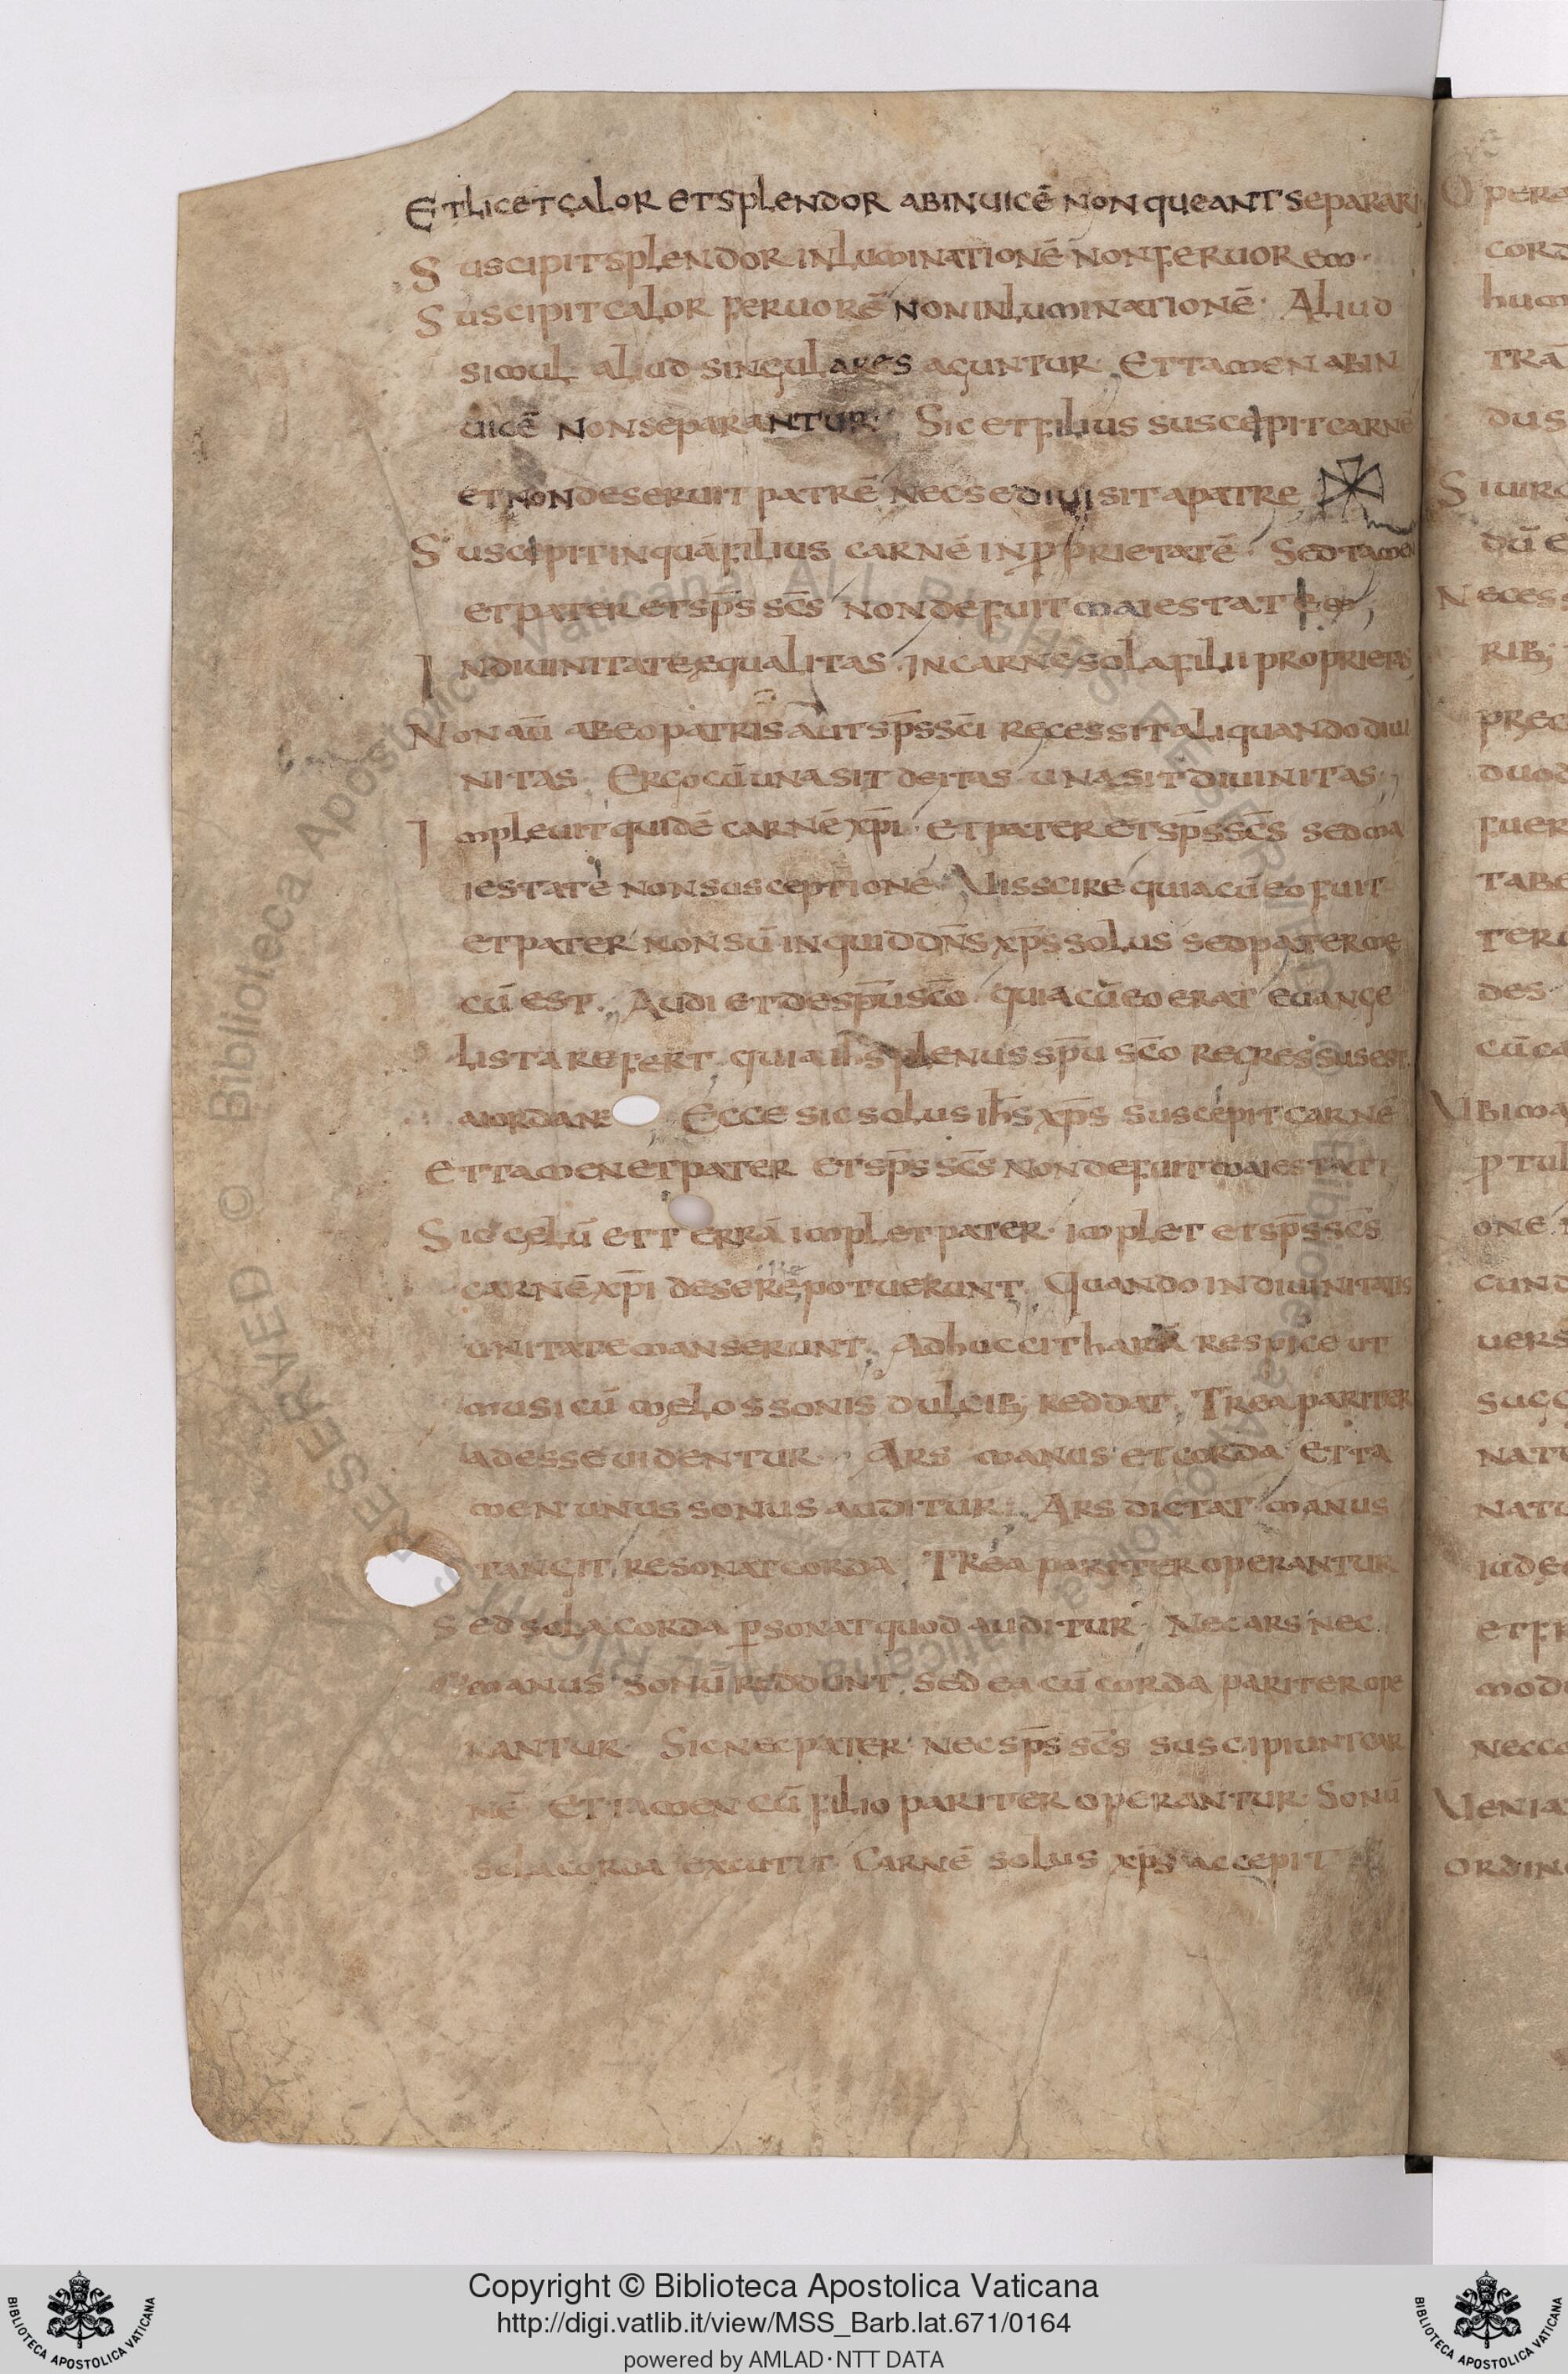 Et licet calor et splendor abinuicē non queant separari
Suscipit splendor inluminationē non feruorem·
Suscipit calor feruorē non inluminationē· Aliud
simul aliud singulares aguntur· Et tamen abin
uicē non separantur· Sic et filius suscepit carnē
et non deseruit patrē nec se diuisit a patre
Suscepit inquā filius carnē in pprietatē· Sed tamen
et pater et sp̄s sc̄s non defuit maiestate
In diuinitate equalitas in carne sola filii proprietas
Non aū ab eo patris aut sp̄s sc̄i recessit aliquando diui
nitas· Ergo cū una sit deitas una sit diuinitas·
Impleuit quidē carnē xp̄i· et pater et sp̄s sc̄s sed ma
iestate non susceptionē· Uis scire quia cū eo fuit
et pater non sū inquid dn̄s xp̄s solus sed pater me
cū est· Audi et de sp̄u sc̄o quia cū eo erat euange
lista refert· quia ih̄s plenus sp̄u sc̄o regressus est
a iordane Ecce sic solus ih̄s xp̄s suscepit carnē
Et tamen et pater et sp̄s sc̄s non defuit maiestati
Sic celū et terrā implet pater· implet et sp̄s sc̄s
carnē xp̄i deserere potuerunt· Quando in diuinitatis
unitate manserunt· Adhuc citharā respice ut
musicū melos sonis dulcib; reddat· Trea pariter
adesse uidentur· Ars manus et corda et ta
men unus sonus auditur· Ars dictat manus
tangit, resonat corda Trea pariter operantur
Sed sola corda psonat quod auditur· Nec ars nec
manus sonū reddunt· sed ea cū corda pariter ope
rantur· Sic nec pater nec sp̄s sc̄s suscipiunt car
nē et tamen cū filio pariter operantur· Sonū
sola corda excutit Carnē solus xp̄s accepit
Copyright © Biblioteca Apostolica Vaticana
http://digi.vatlib.it/view/MSS_Barb.lat.671/0164
powered by AMLAD·NTT DATA